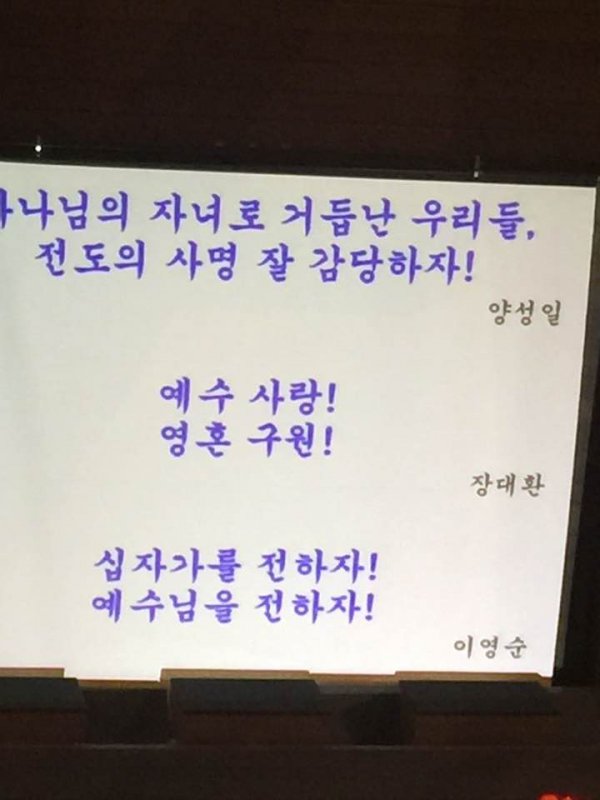 하나님의 자녀로 거듭난 우리들,
전도의 사명 잘 감당하자!
양성일
예수 사랑!
영혼 구원!
장대환
십자가를 전하자!
예수님을 전하자!
이영순